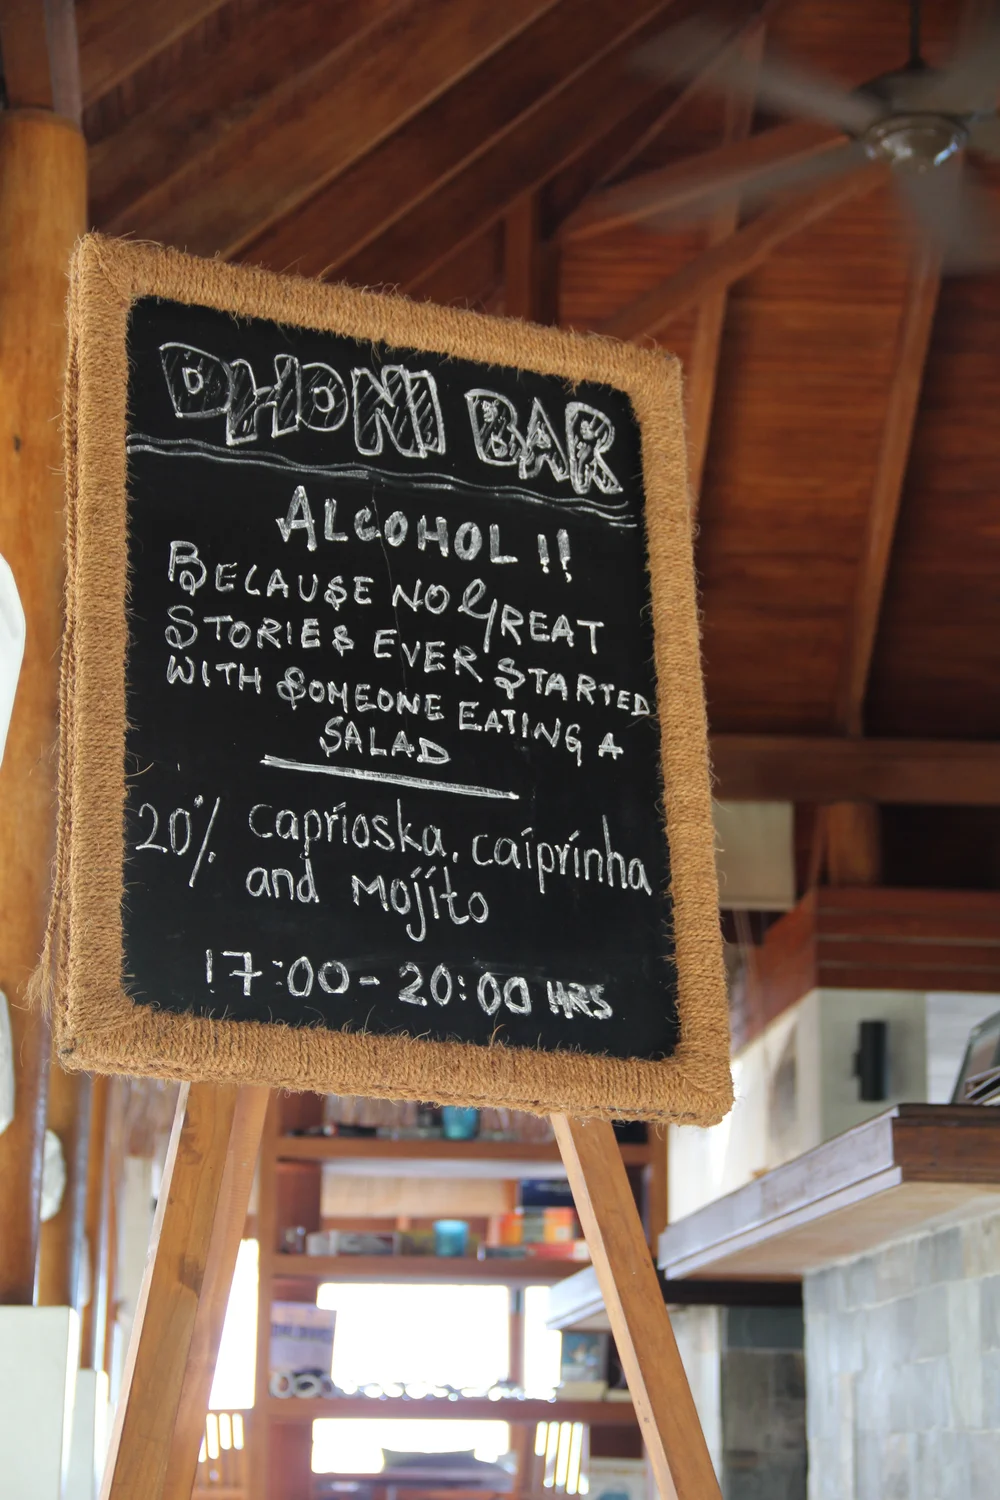 DHONI BAR
ALCOHOL !!
BECAUSE NO GREAT
STORIES EVER STARTED
WITH SOMEONE EATING A
SALAD
20% caprioska, caiprinha
and mojito
17:00 - 20:00 HRS